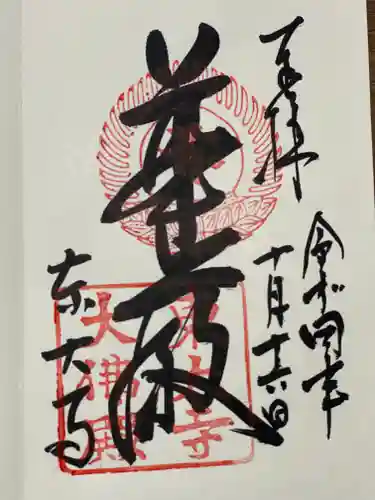 奉拝
令和四年
十月十六日
華厳
東大寺
東大寺
大佛殿